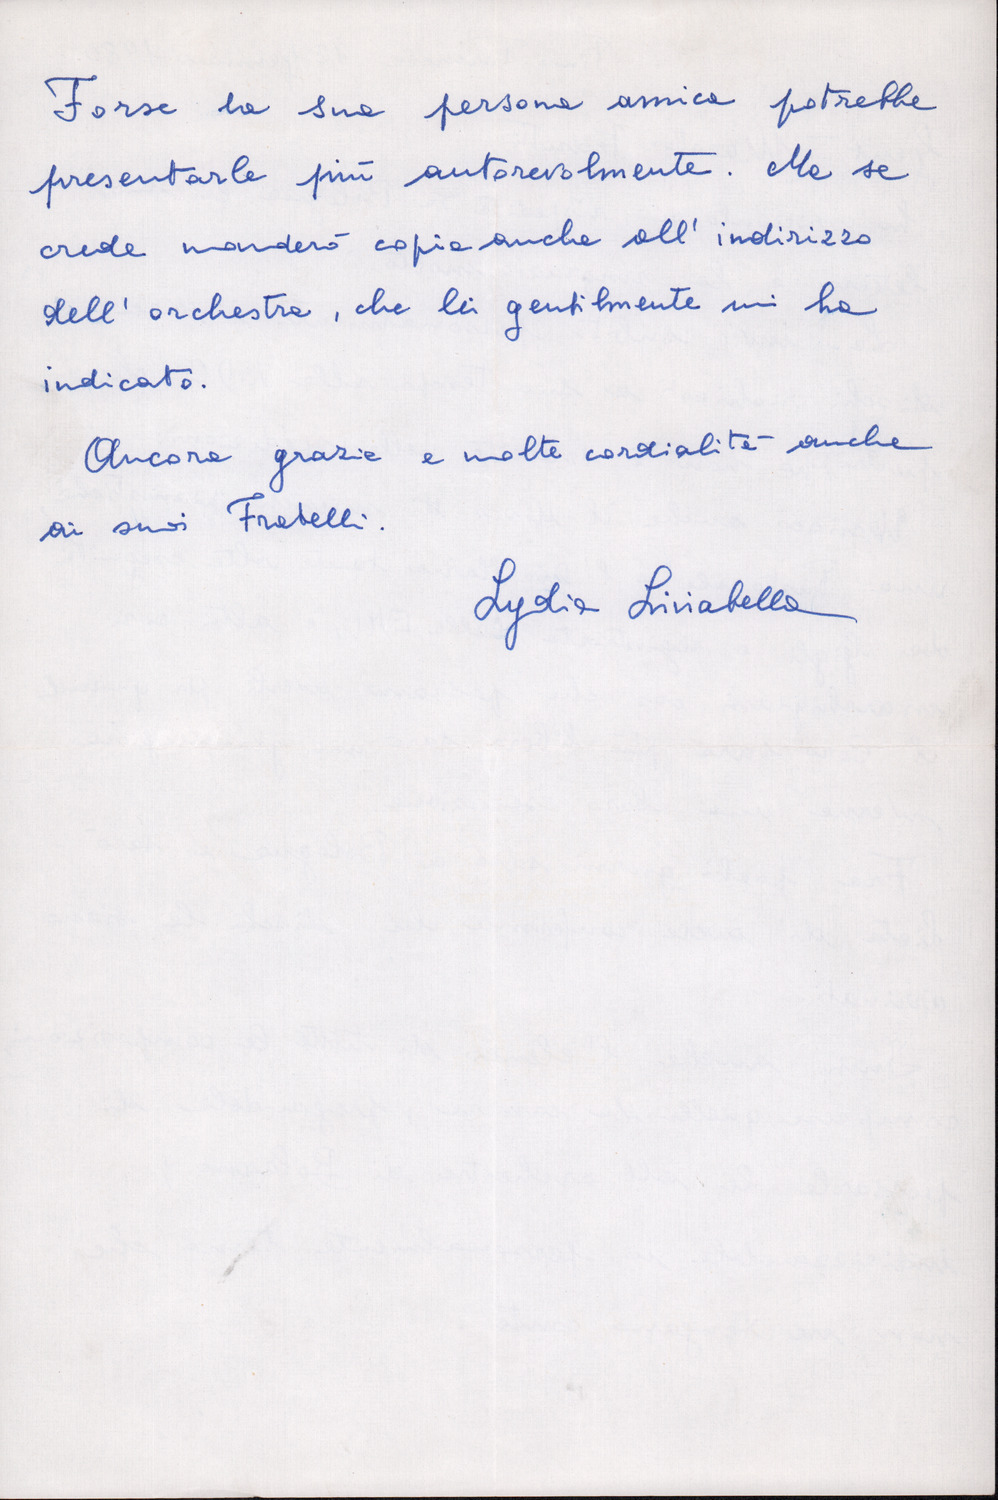 Forse la sua persona amica potrebbe
presentarle più autorevolmente. Ma se
crede manderò copia anche all'indirizzo
dell'orchestra, che lei gentilmente mi ha
indicato.
Ancora grazie e molte cordialità anche
ai suoi Fratelli.
Lydia Liviabella